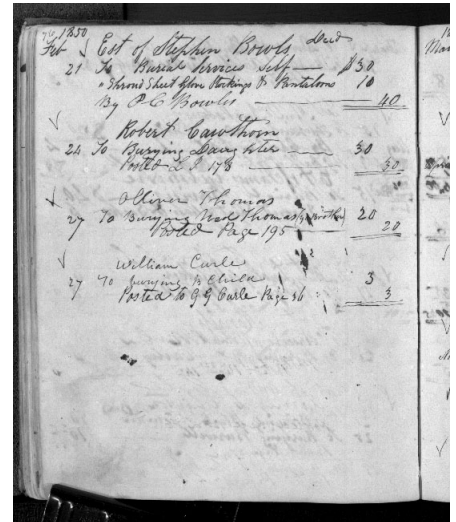 76 1850
Feb Est of Stephen Bowls Decd
21 To Burial Services Self $30
" Shroud Sheet Glov Stockings & Pantaloons 10
By P. C. Bowls 40
Robert Cawthorn
24 To Burying Daughter 30
Posted L J. 173 30
Olliver Thomas
27 To Burying Ned Thomas (Brother) 20
Posted Page 195 20
William Carle
27 To Burying Child 3
Posted to G G Carle Page 36 3